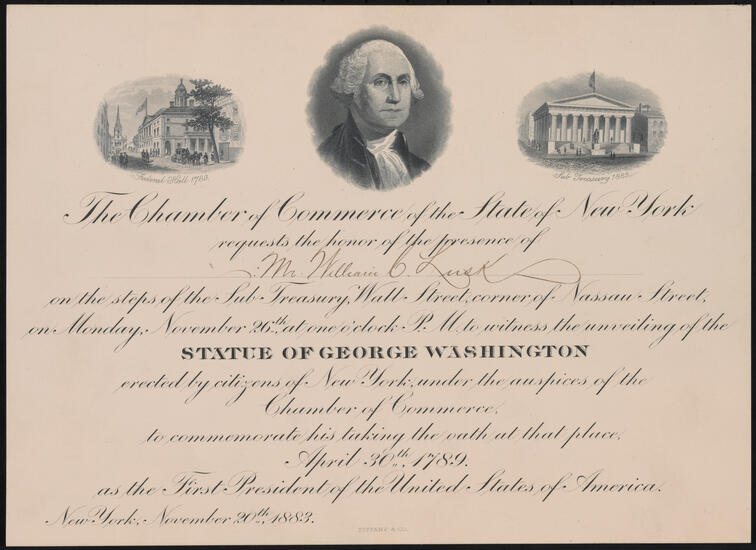 Federal Hall 1789.
Sub Treasury 1883.
The Chamber of Commerce of the State of New York
requests the honor of the presence of
Mr. William C. Lusk
on the steps of the Sub-Treasury, Wall-Street, corner of Nassau Street,
on Monday, November 26th, at one o'clock P.M. to witness the unveiling of the
STATUE OF GEORGE WASHINGTON
erected by citizens of New York, under the auspices of the
Chamber of Commerce,
to commemorate his taking the oath at that place,
April 30th, 1789.
as the First President of the United States of America.
New York, November 20th, 1883.
TIFFANY & CO.